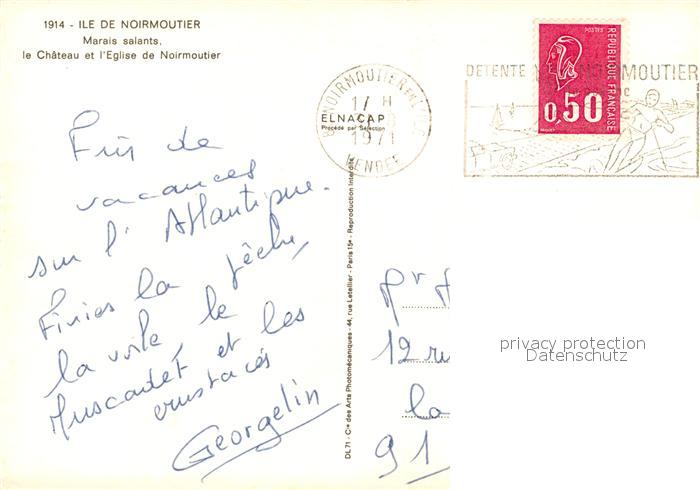 1914 - ILE DE NOIRMOUTIER
Marais salants,
le Château et l'Eglise de Noirmoutier
NOIRMOUTIER EN L'ILE
17 H
1971
VENDEE
ELNACAP
Procédé par Sélection
DETENTE NOIRMOUTIER
POSTES
REPUBLIQUE FRANÇAISE
0,50
Fin de
vacances
sur l'Atlantique.
Finies la pêche,
la voile, le
Muscadet et les
crustacés
Georgelin
DL 71 - Cie des Arts Photomécaniques - 44, rue Letellier - Paris 15e - Reproduction Interdite
12 ru
la
91
privacy protection
Datenschutz